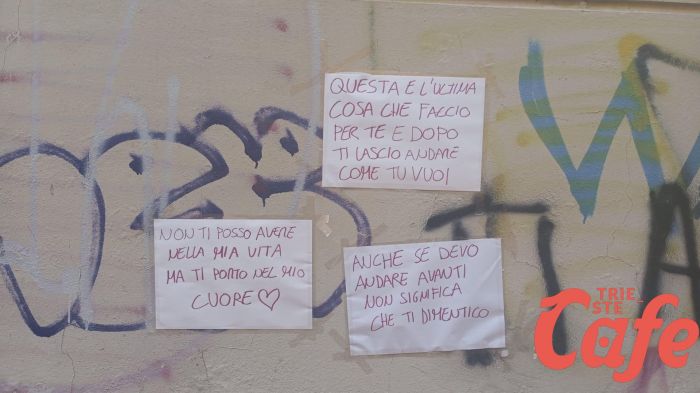 QUESTA E L'ULTIMA
COSA CHE FACCIO
PER TE E DOPO
TI LASCIO ANDARE
COME TU VUOI
NON TI POSSO AVERE
NELLA MIA VITA
MA TI PORTO NEL MIO
CUORE ♡
ANCHE SE DEVO
ANDARE AVANTI
NON SIGNIFICA
CHE TI DIMENTICO
TRIE
STE
Cafe